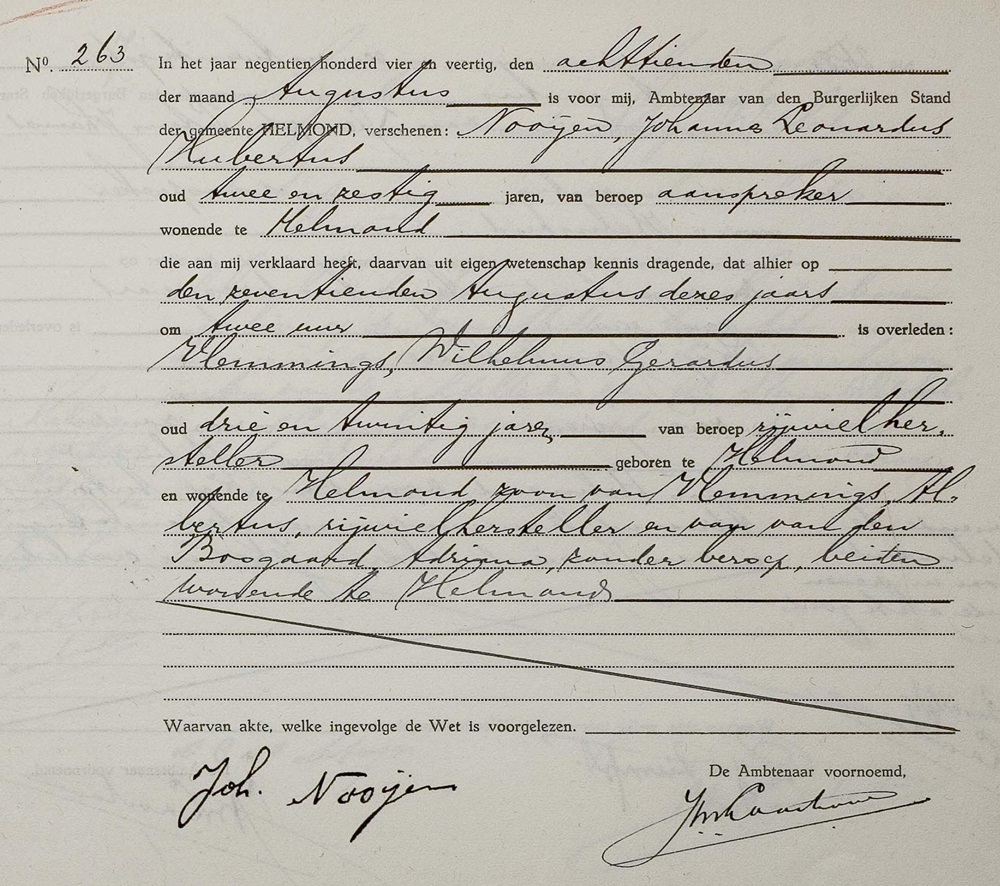 Nº. 263
In het jaar negentien honderd vier en veertig, den achttienden
der maand Augustus is voor mij, Ambtenaar van den Burgerlijken Stand
der gemeente HELMOND, verschenen: Nooijen, Johannes Leonardus
Hubertus
oud twee en zestig jaren, van beroep aanspreker
wonende te Helmond
die aan mij verklaard heeft, daarvan uit eigen wetenschap kennis dragende, dat alhier op
den zeventienden Augustus dezes jaars
om twee uur is overleden:
Vlemmings, Wilhelmus Gerardus
oud drie en twintig jaren, van beroep rijwielher-
steller geboren te Helmond
en wonende te Helmond, zoon van Vlemmings, Al-
bertus, rijwielhersteller en van van den
Boogaard, Adriana, zonder beroep, beiden
wonende te Helmond
Waarvan akte, welke ingevolge de Wet is voorgelezen.
De Ambtenaar voornoemd,
Joh. Nooijen